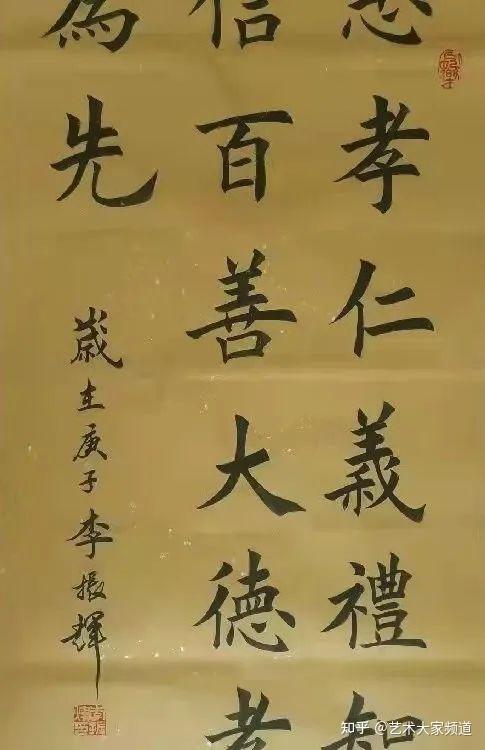 忠孝仁義禮知
信百善大德孝
為先
歲在庚子李振輝
知乎 @艺术大家频道